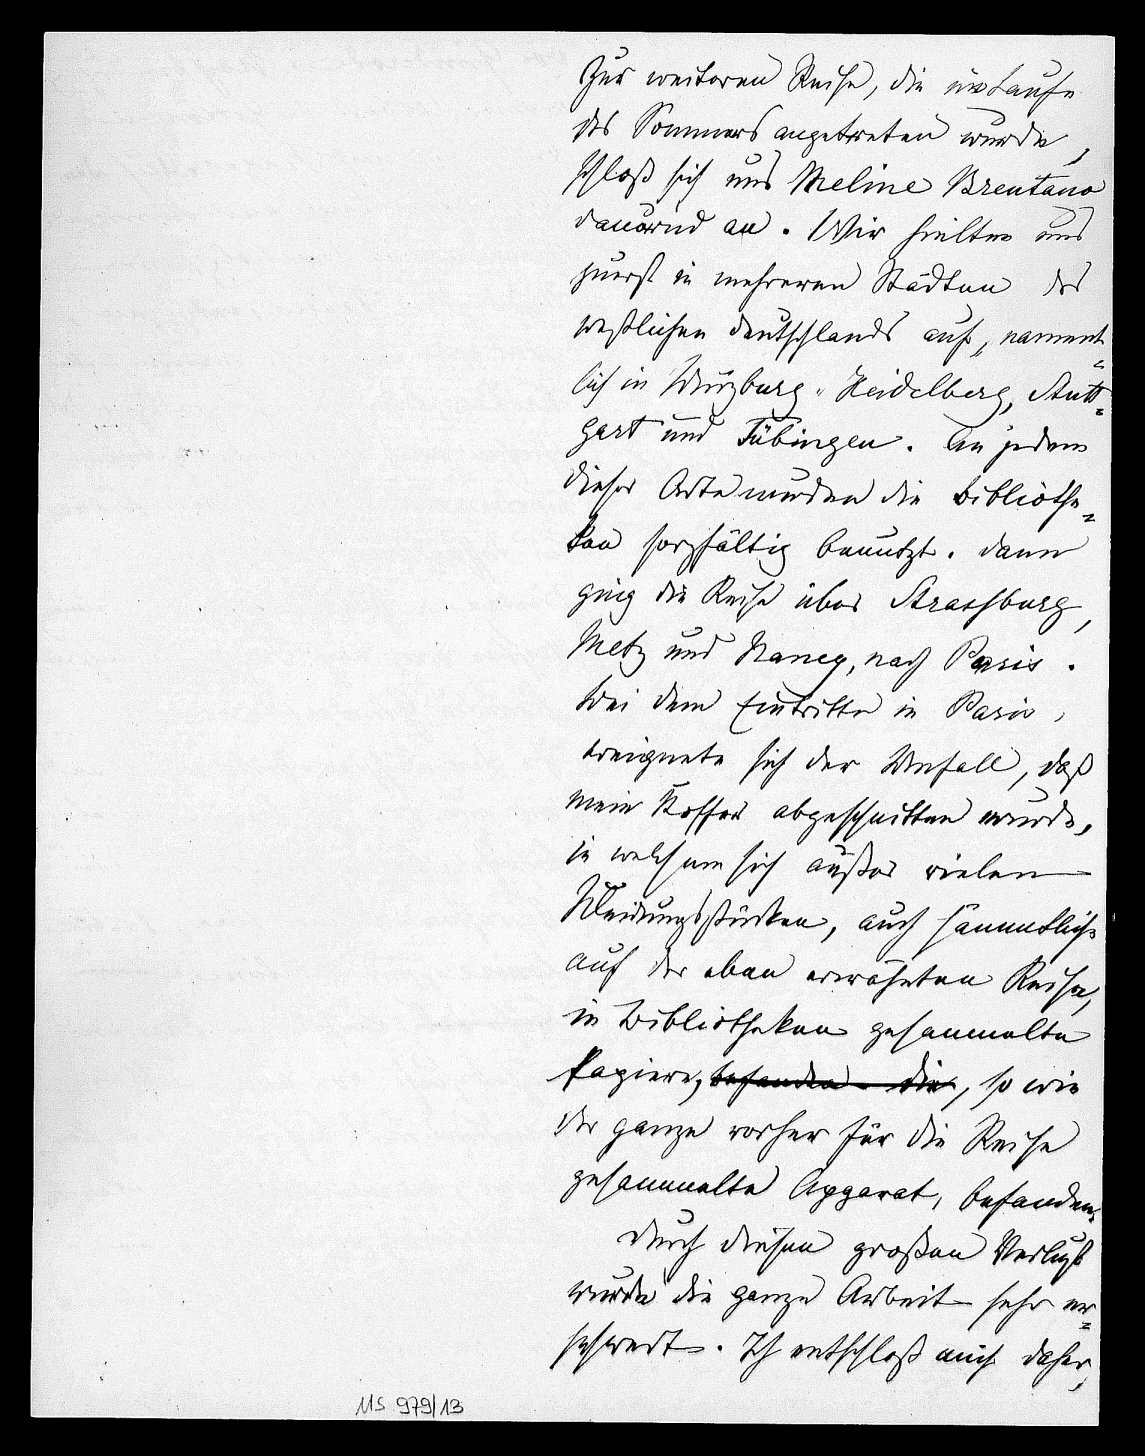 Zur weiteren Reise, die im Laufe
des Sommers angetreten wurde,
schloß sich uns Meline Brentano
dauernd an. Wir hielten uns
zuerst in mehreren Städten des
westlichen Deutschlands auf, nament-
lich in Würzburg, Heidelberg, Stutt-
gart und Tübingen. An jedem
dieser Orte wurden die Bibliothe-
ken sorgfältig benutzt. Dann
ging die Reise über Strassburg,
Metz und Nancy, nach Paris.
Bei dem Eintritte in Paris,
ereignete sich der Unfall, daß
mein Koffer abgeschnitten wurde,
in welchem sich außer vielen
Kleidungsstücken, auch sämmtliche
auf der eben erwähnten Reise,
in Bibliotheken gesammelte
Papiere, befanden. die, so wie
der ganze vorher für die Reise
gesammelte Apparat, befanden.
Durch diesen großen Verlust
wurde die ganze Arbeit sehr er-
schwert. Ich entschloß mich daher,
MS 979/13